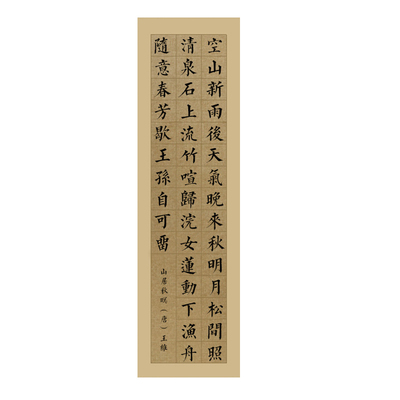 空山新雨後天氣晚來秋明月松間照
清泉石上流竹喧歸浣女蓮動下漁舟
隨意春芳歇王孫自可畱
山居秋暝（唐）王維